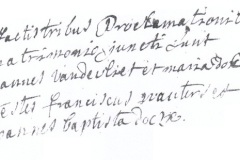 factis tribus Proclamationib
matrimonio iuncti sunt
annes vandevliet et maria do
testes franciscus
joannes baptista